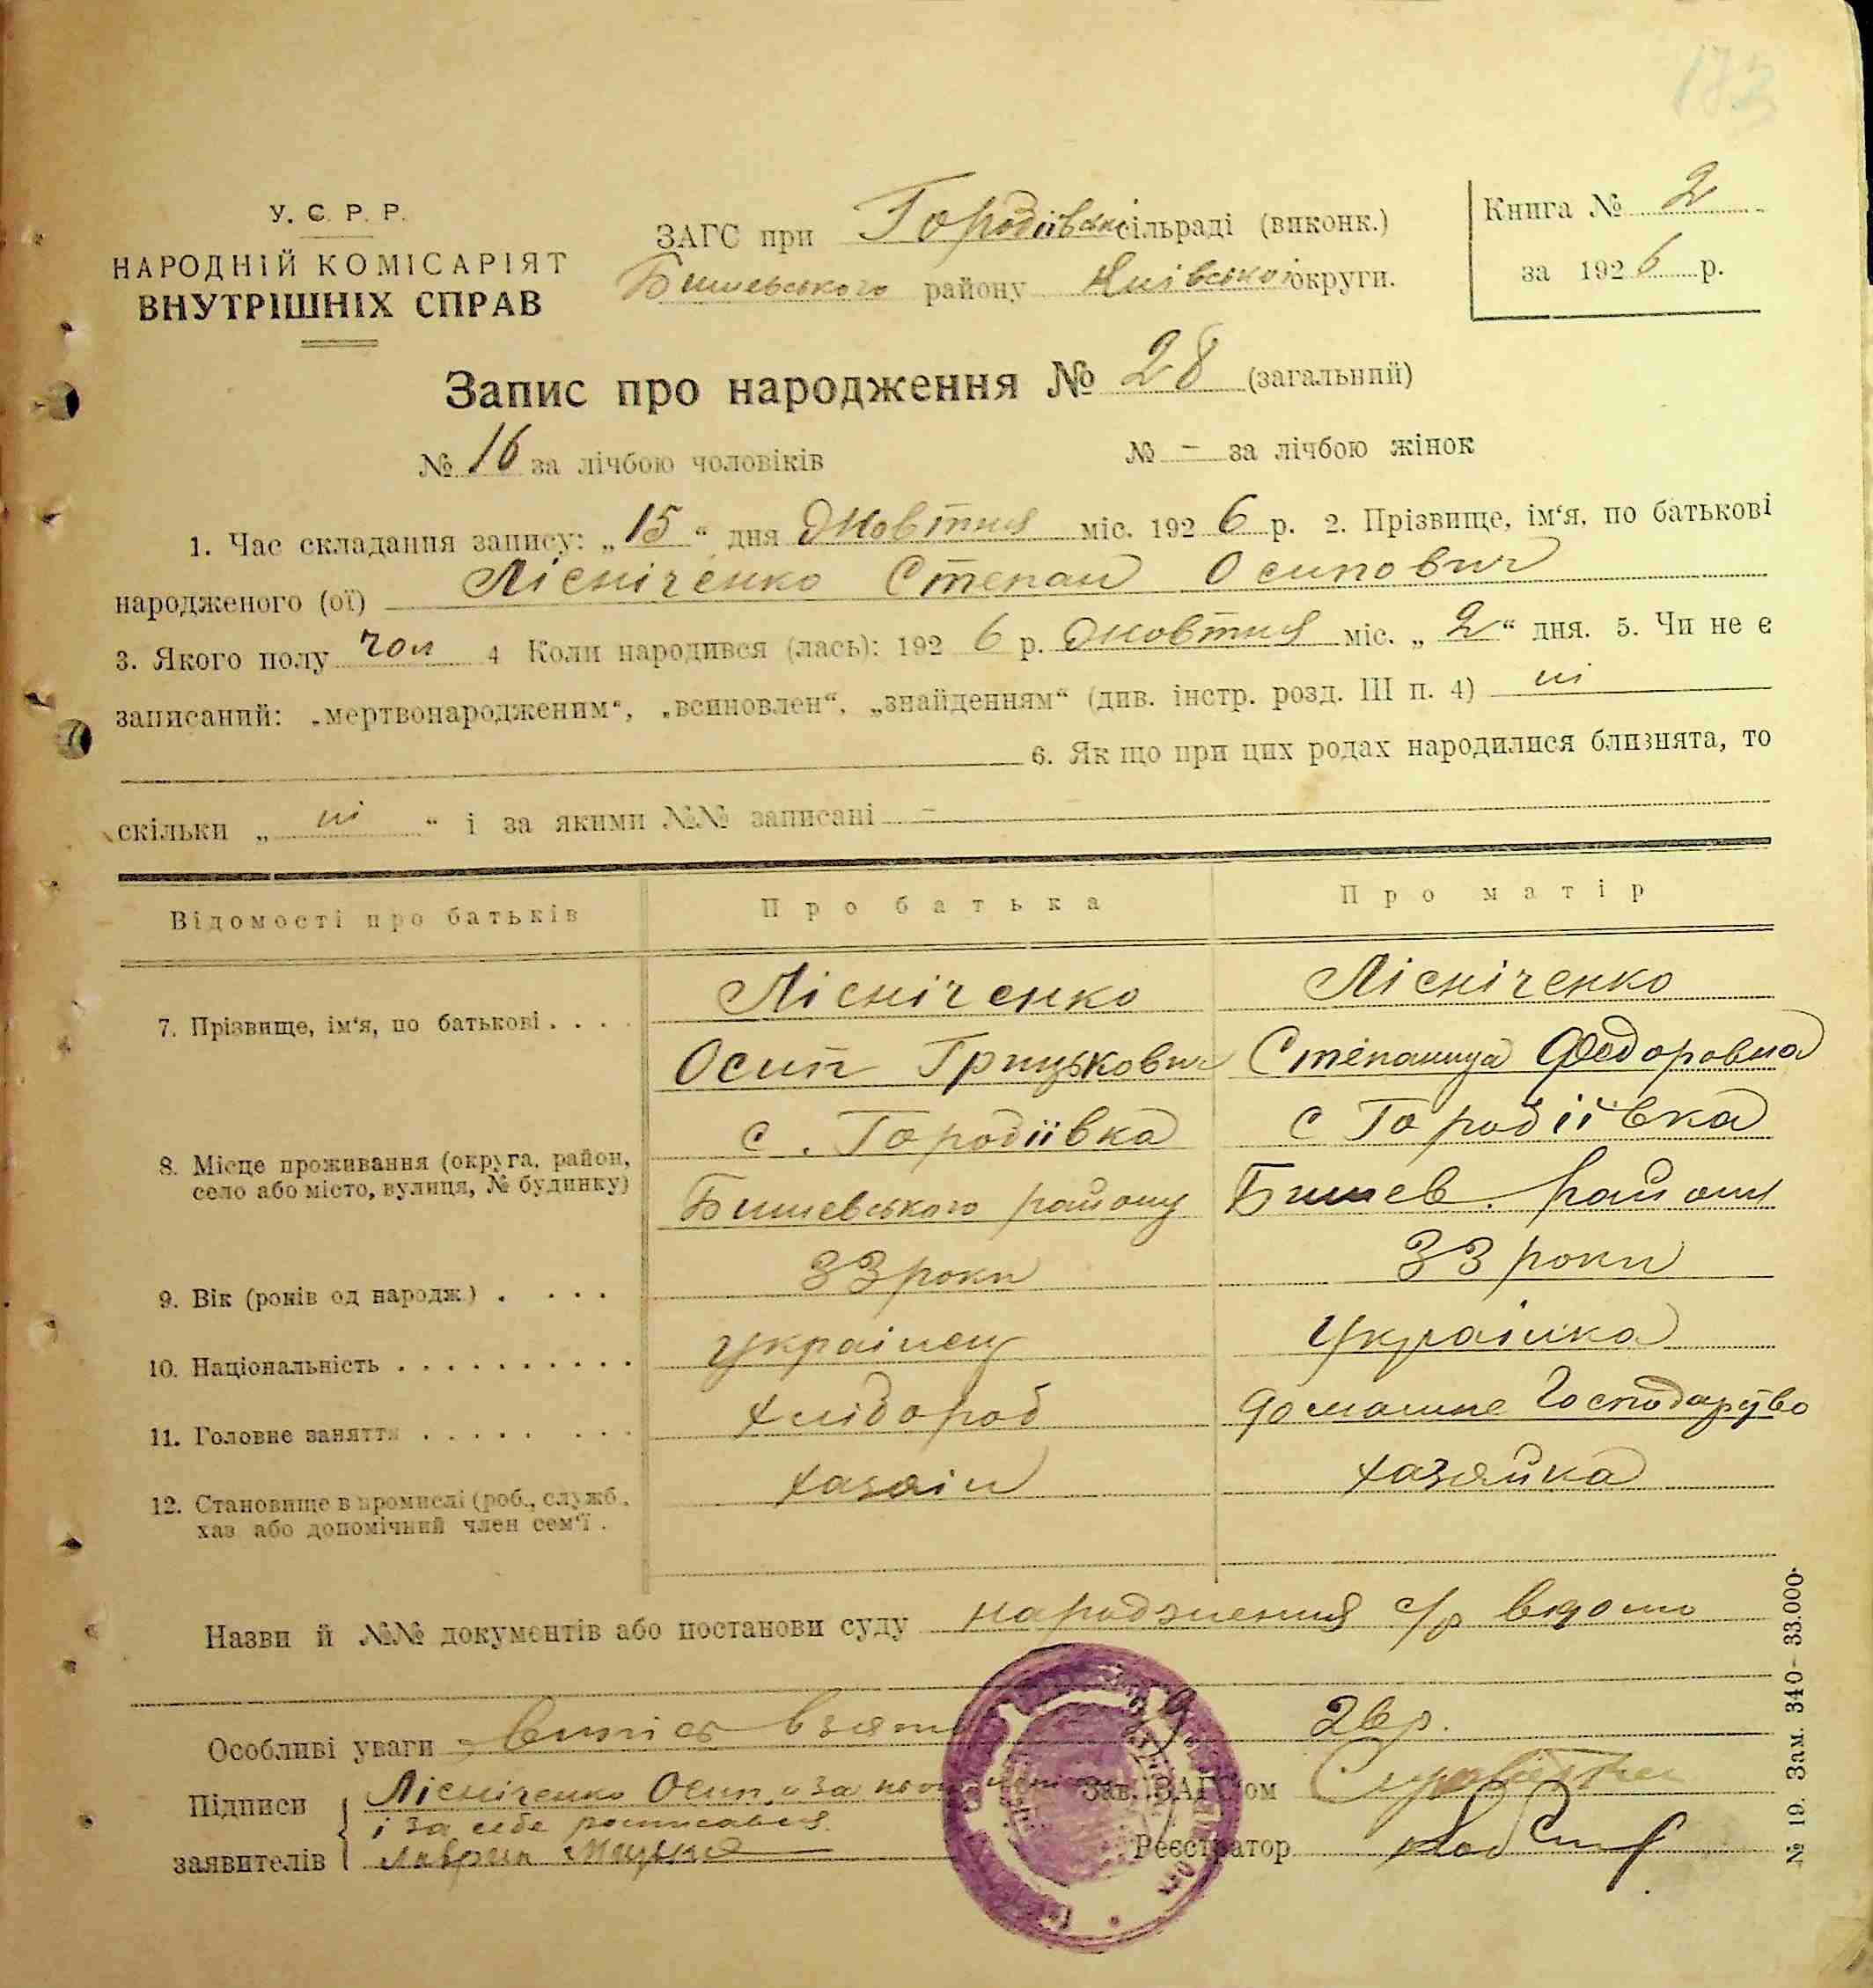 173
У. С. Р. Р.
НАРОДНІЙ КОМІСАРІЯТ
ВНУТРІШНІХ СПРАВ
ЗАГС при Городіївській сільраді (виконк.)
Бишевського району Київської округи.
Книга № 2
за 1926 р.
Запис про народження № 28 (загальний)
№ 16 за лічбою чоловіків № – за лічбою жінок
1. Час складання запису: „15“ дня Жовтня міс. 1926 р. 2. Прізвище, ім‘я, по батькові
народженого (ої) Лісніченко Степан Осипович
3. Якого полу чол 4 Коли народився (лась): 1926 р. Жовтня міс. „2“ дня. 5. Чи не є
записаний: „мертвонародженим“, „всиновлен“, „знайденням“ (див. інстр. розд. III п. 4) ні
6. Як що при цих родах народилися близнята, то
скільки „ ні “ і за якими №№ записані –
Відомості про батьків Про батька Про матір
7. Прізвище, ім‘я, по батькові . . . . Лісніченко Лісніченко
Осип Грицькович Степанида Федоровна
8. Місце проживання (округа, район, с. Городіївка с Городіївка
село або місто, вулиця, № будинку) Бишевського району Бишев. району
9. Вік (років од народж.) . . . . 33 роки 33 роки
10. Національність . . . . . . . . . . українец Українка
11. Головне заняття . . . . . . . . хлібороб домашне Господарство
12. Становище в промислі (роб., служб., хазяін хазяйка
хаз. або допомічний член сем‘ї .
Назви й №№ документів або постанови суду народження с/р відомо
Особливі уваги взято 26 р.
Підписи Лісніченко Осип, а за нього
і за себе росписався
заявителів Лаврин
Зав. ЗАГС‘ом
Реєстратор
№ 19. Зам. 340–33.000.